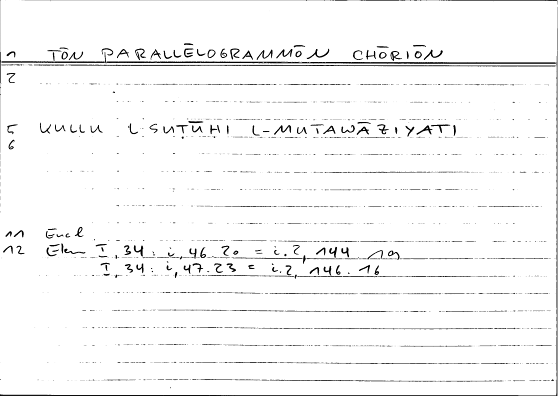 1 TŌN PARALLĒLOGRAMMŌN CHŌRIŌN
2
5 KULLU L-SUṬŪḤI L-MUTAWĀZIYATI
6
11 Eucl
12 Elem I, 34: i, 46.20 = i.2, 144
I, 34: i, 47.23 = i.2, 146.16